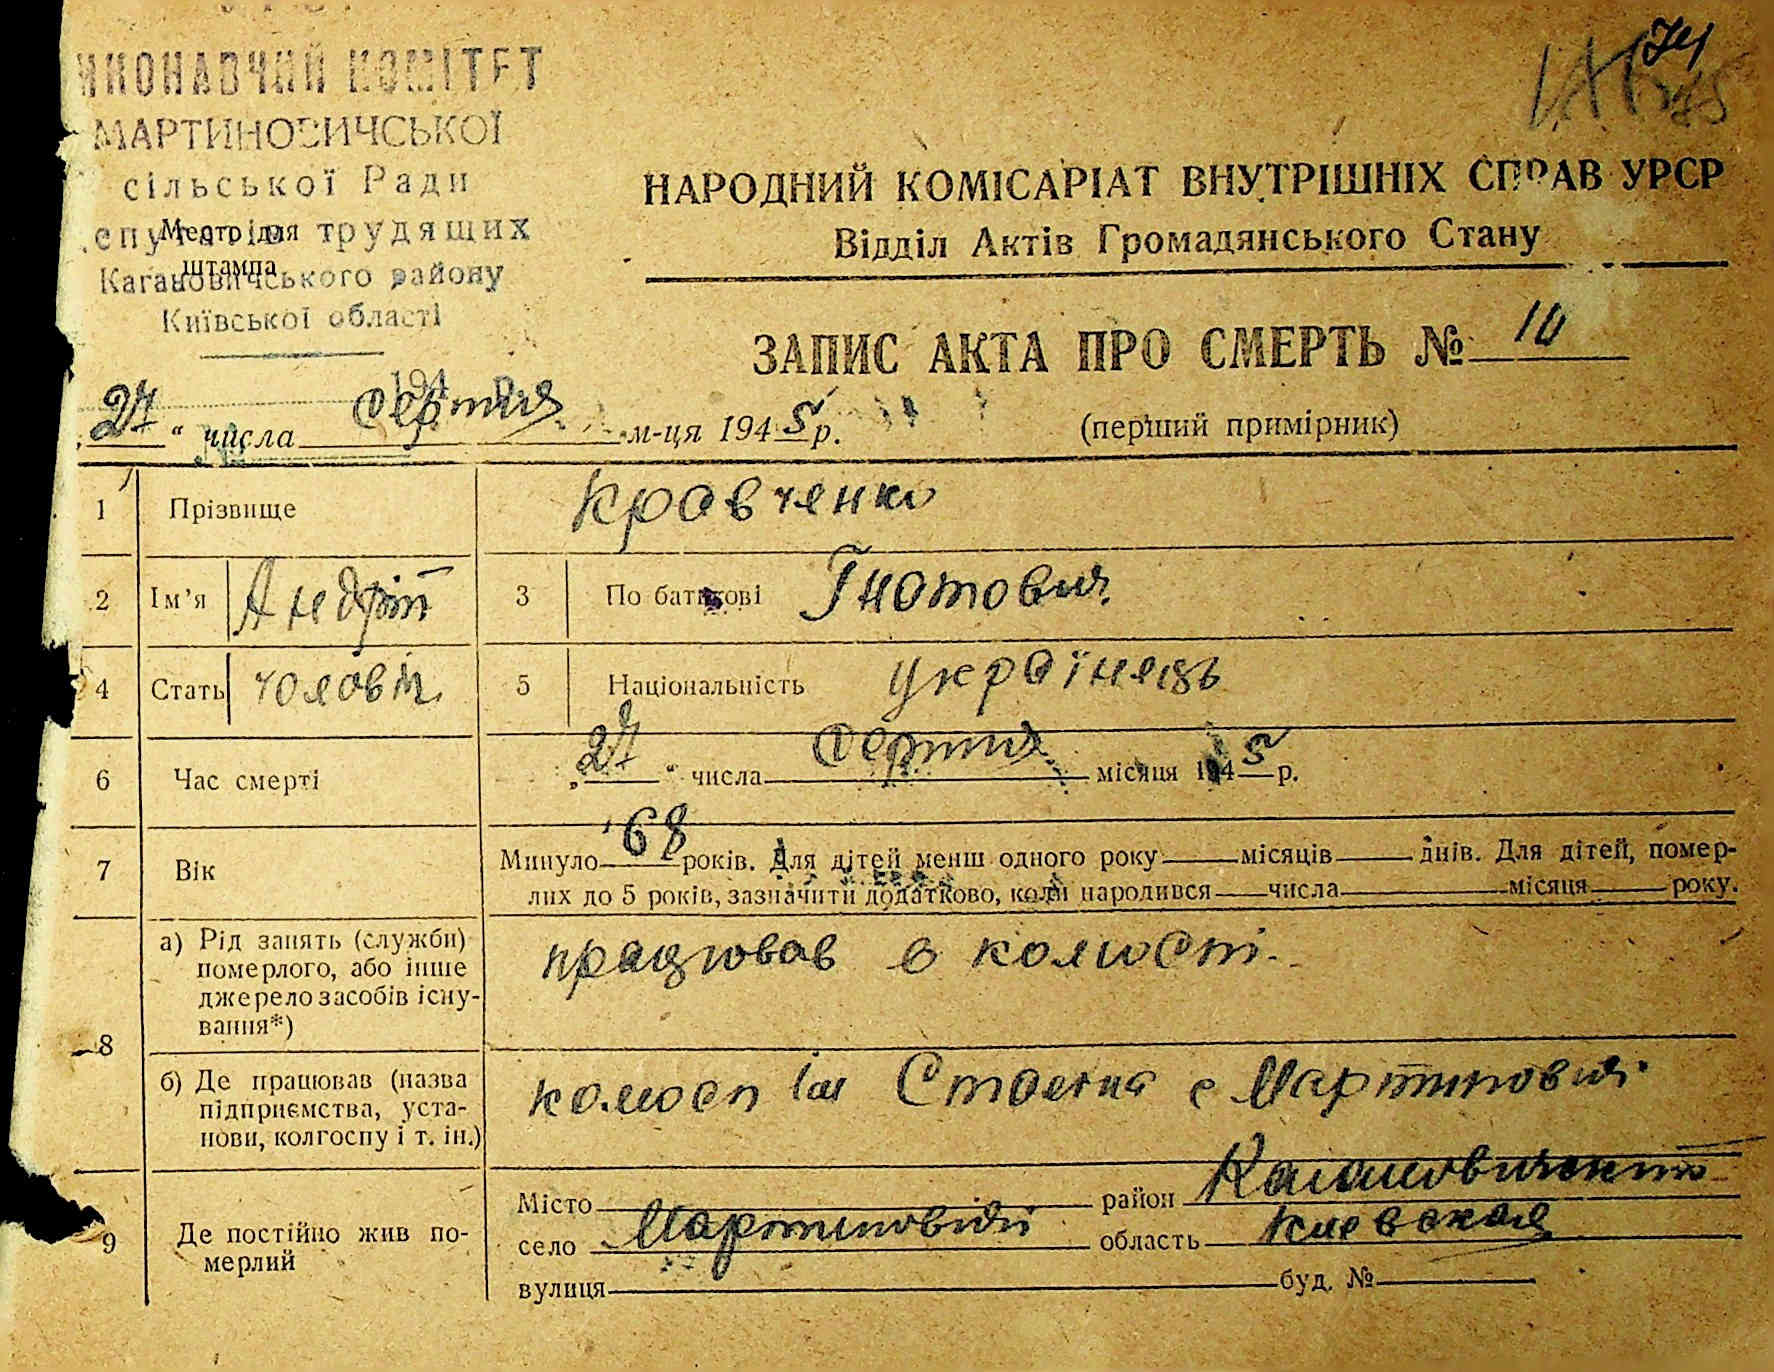 ИКОНАВЧИЙ КОМІТЕТ
МАРТИНОВИЧСЬКОЇ
сільської Ради
епутатів трудящих
Место для
штампа
Кагановичського району
Київської області
194 р.
НАРОДНИЙ КОМІСАРІАТ ВНУТРІШНІХ СПРАВ УРСР
Відділ Актів Громадянського Стану
ЗАПИС АКТА ПРО СМЕРТЬ № 10
„27“ числа серпня м-ця 1945 р. (перший примірник)
1 Прізвище Кравченко
2 Ім’я Андрій 3 По батькові Гнатович
4 Стать чоловіч. 5 Національність українець
6 Час смерті „27“ числа серпня місяця 1945 р.
7 Вік Минуло 68 років. Для дітей менш одного року місяців днів. Для дітей, помер-
лих до 5 років, зазначити додатково, коли народився числа місяця року.
8 а) Рід занять (служби)
померлого, або інше
джерело засобів існу-
вання*)
працював в колгоспі
б) Де працював (назва
підприємства, уста-
нови, колгоспу і т. ін.)
колгосп Ім Сталіна с Мартиновичі
9 Де постійно жив по-
мерлий
Місто район Кагановический
село Мартиновичі область Киевская
вулиця буд. №